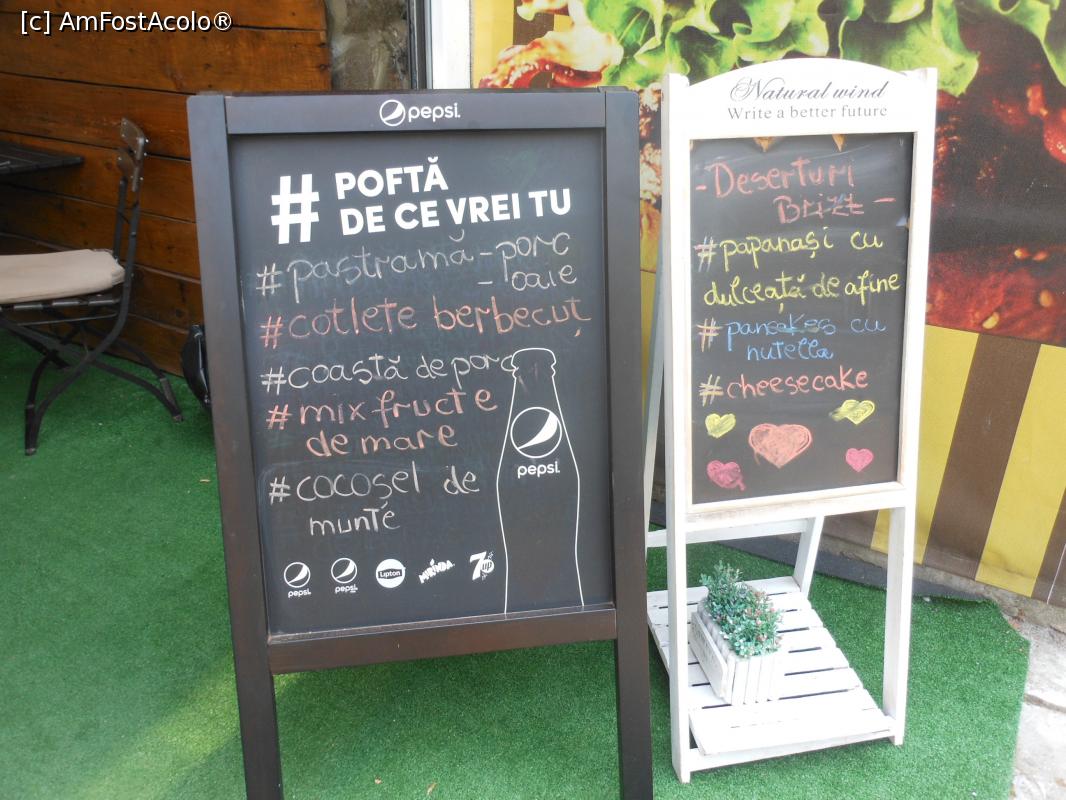 [c] AmFostAcolo®
pepsi.
# POFTĂ
DE CE VREI TU
#pastramă-porc
-oaie
#cotlete berbecuț
#coastă de porc
#mix fructe
de mare
#cocoșel de
munte
pepsi.
pepsi. pepsi. Lipton MIRINDA 7up
Natural wind
Write a better future
-Deserturi
Brizt-
#papanași cu
dulceață de afine
#pancakes cu
nutella
#cheesecake